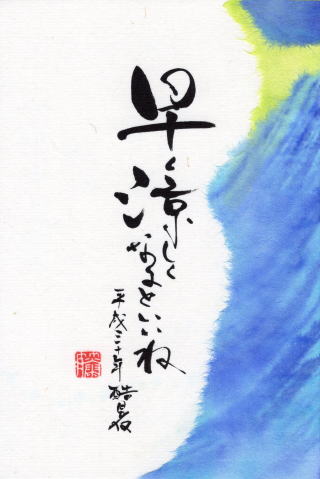 早く涼しく
なるといいね
平成三十年 酷暑